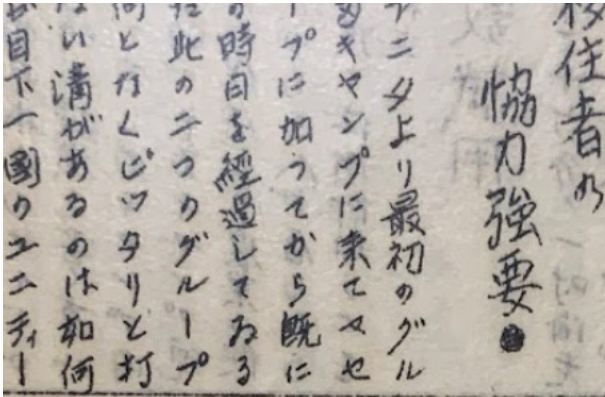 移住者の
協力強要
アニタより最初のグル
キャンプに来てマセ
ープに加つてから既に
の時日を経過してゐる
此の二つのグループ
何となくピッタリと打
ない溝があるのは如何
目下一國のユニティー